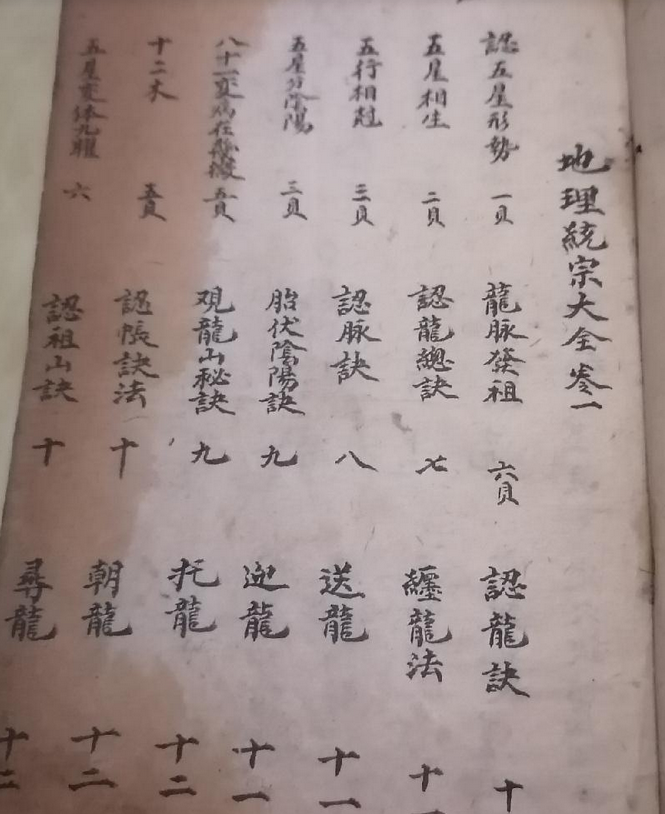 地理統宗大全卷一
認五星形勢 一頁
五星相生 二頁
五行相尅 三頁
五星分陰陽 三頁
八十一変 五頁
十二木 五頁
五星変体九曜 六
龍脉發祖 六頁
認龍總訣 七
認脉訣 八
胎伏陰陽訣 九
观龍山秘訣 九
認帳訣法 十
認祖山訣 十
認龍訣 十
纏龍法 十一
送龍 十一
迎龍 十一
托龍 十二
朝龍 十二
尋龍 十二